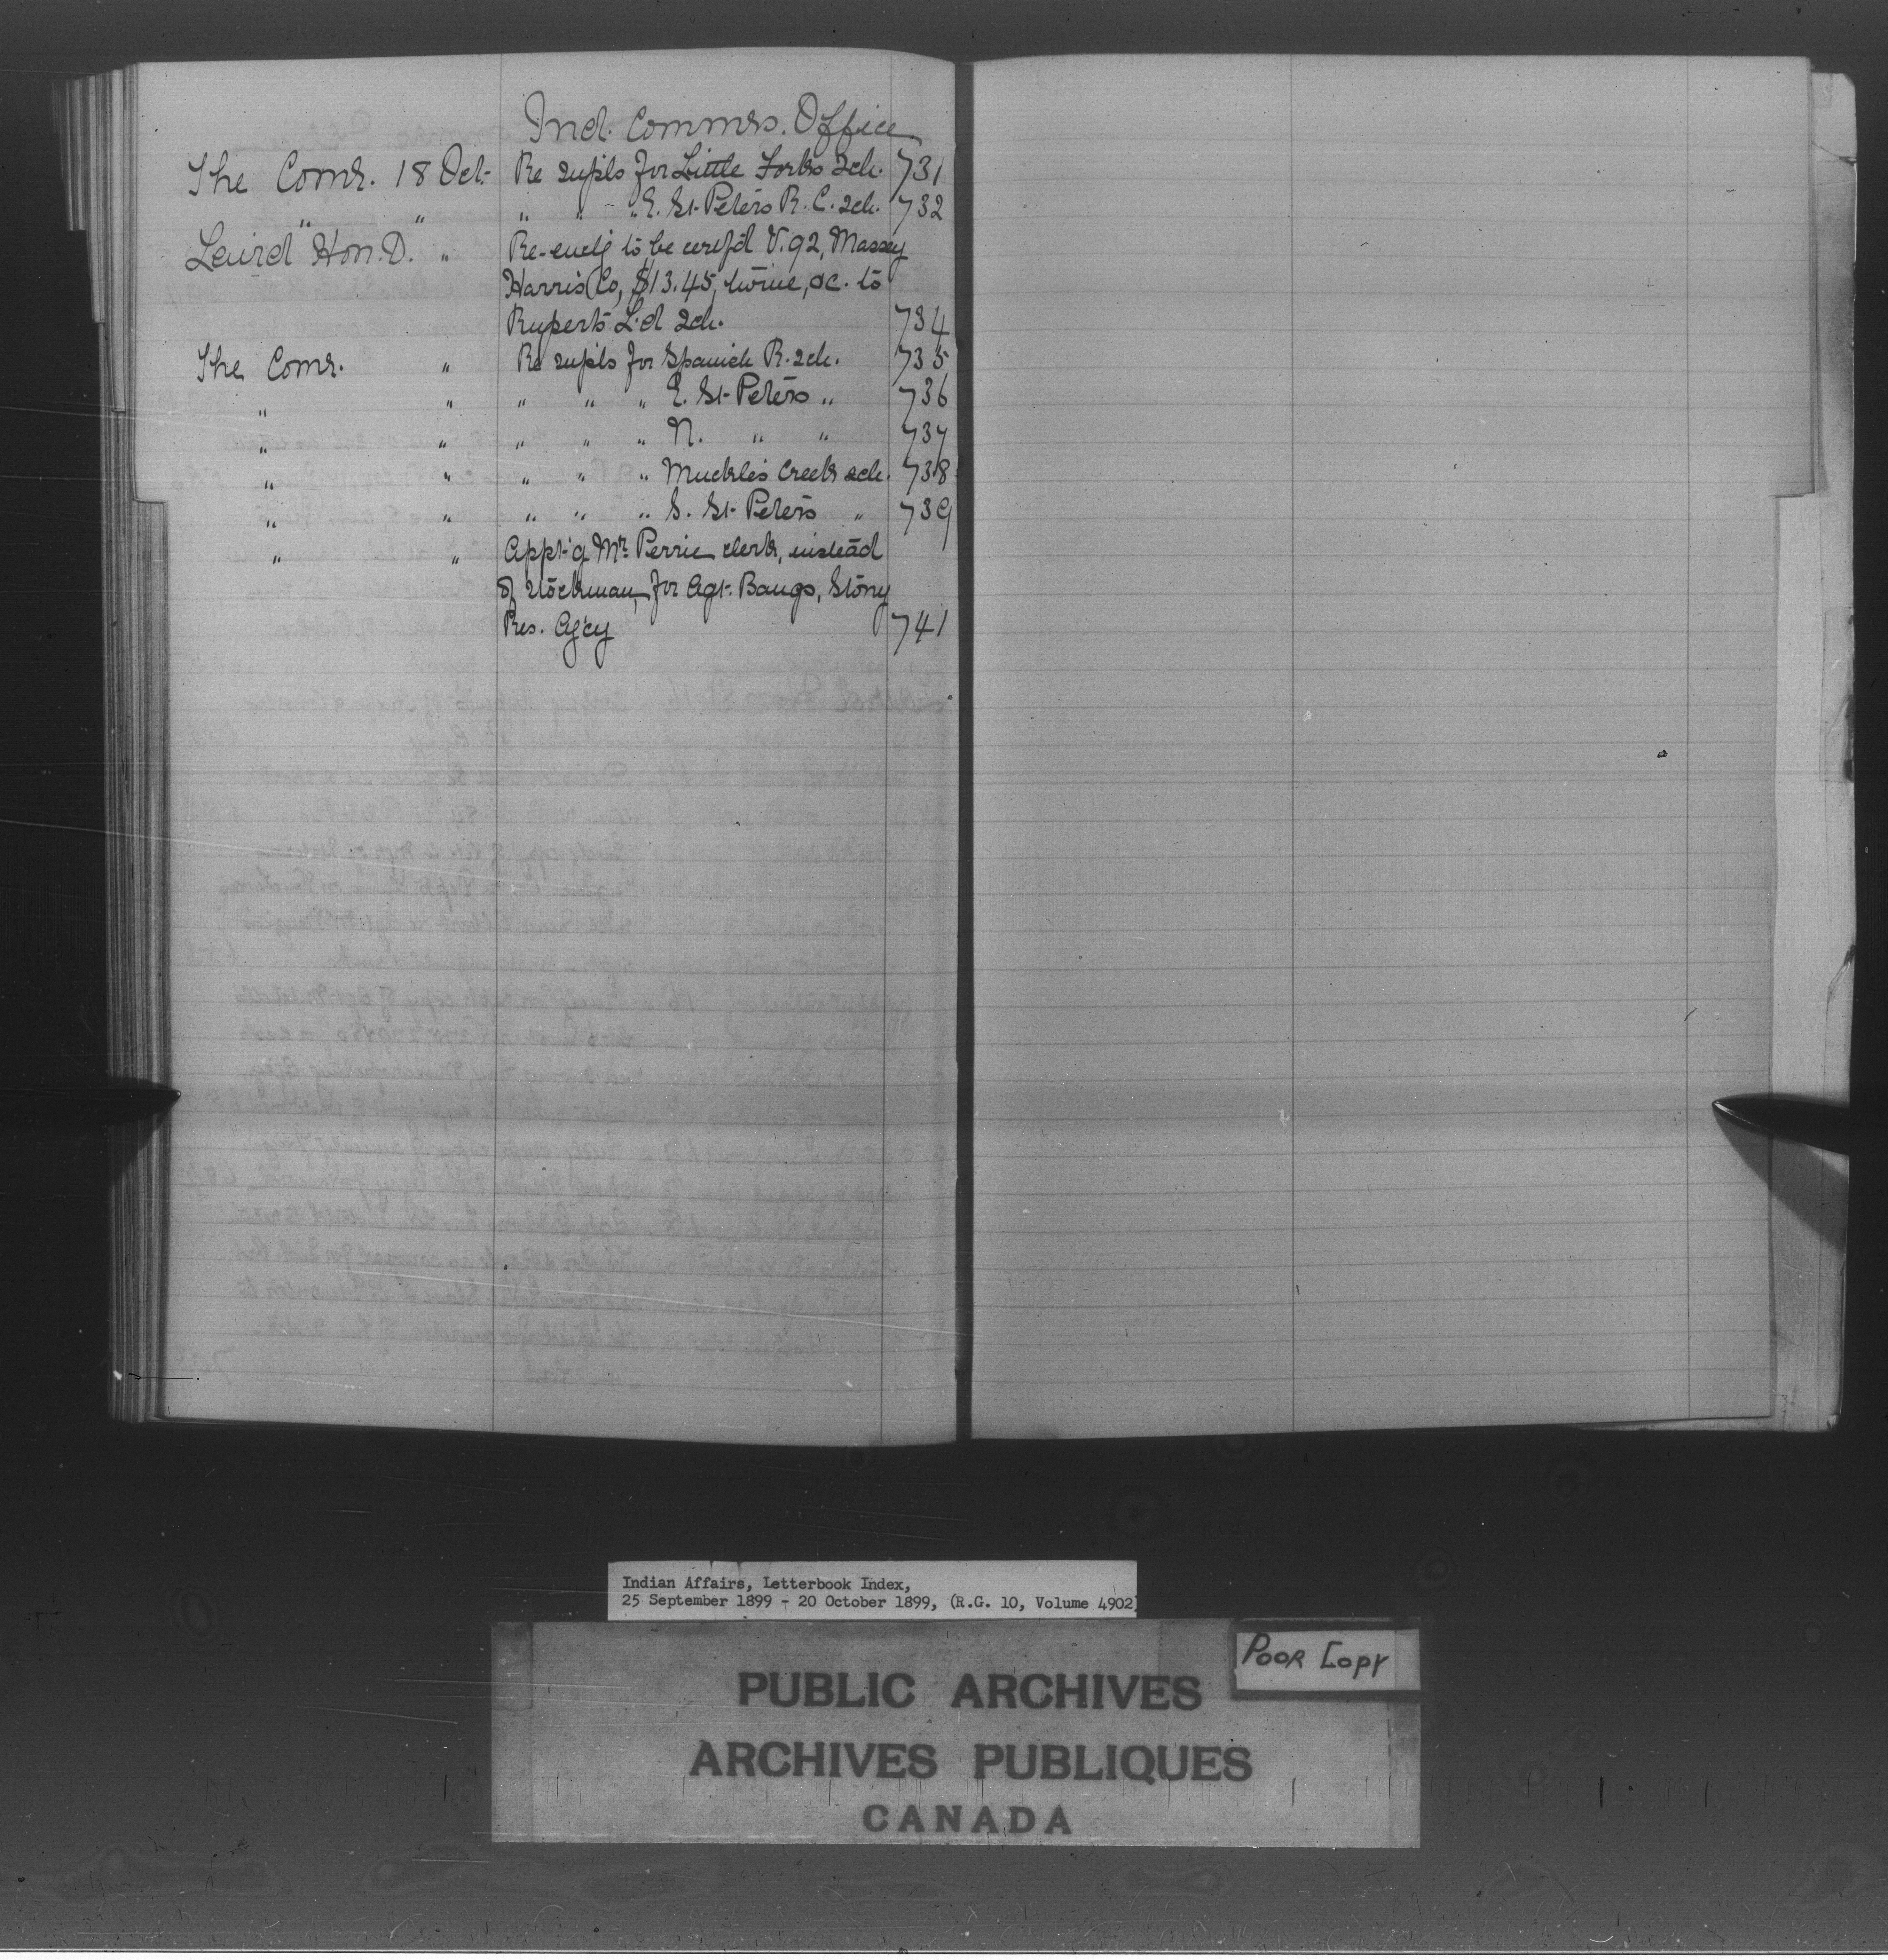 Ind. Commrs. Office
The Comr. 18 Oct. Re supls for Little Forks Sch. 731
" " " " " E. St. Peters R. C. Sch. 732
Laird Hon. D. " Re to be certf'd V. 92, Massey
Harris Co, $13.45, twine, &c. to
Ruperts L'd Sch. 734
The Comr. " Re supls for Spanish R. Sch. 735
" " " " " E. St. Peters " 736
" " " " " N. " " 737
" " " " " Muckle's Creek Sch. 738
" " " " " S. St. Peters " 739
" " Appt'g Mr. Perrie clerk, instead
of stockman, for Agt. Bangs, Stony
Res. Ag'cy 741
Indian Affairs, Letterbook Index,
25 September 1899 - 20 October 1899, (R.G. 10, Volume 4902)
POOR COPY
PUBLIC ARCHIVES
ARCHIVES PUBLIQUES
CANADA